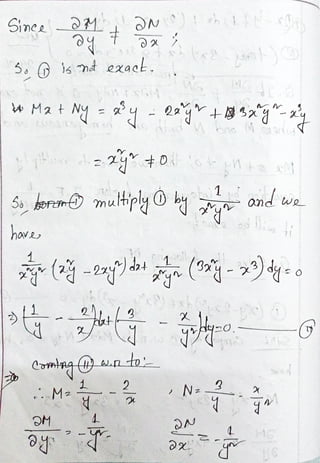 Since ∂M/∂y ≠ ∂N/∂x ;
So, ① is not exact.
Mx + Ny = x³y - 2x²y² + 3x²y² - x³y
= x²y² ≠ 0
So, multiply ① by 1/x²y² and we
have,
1/x²y² (x²y - 2xy²) dx + 1/x²y² (3x²y - x³) dy = 0
⇒ (1/y - 2/x) dx + (3/y - x/y²) dy = 0. —— ⑪
coming ⑪ w.r. to:-
∴ M = 1/y - 2/x , N = 3/y - x/y²
∂M/∂y = -1/y² ∂N/∂x = -1/y²